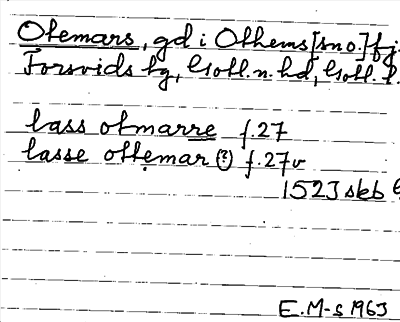 Otemars, gd i Othems [sno.] fj.
Forsvids tg, Gotl. n. hd, Gotl. l.
lass otmarre f.27
lasse ottemar (?) f.27v
1523 skb
E.M-s 1963